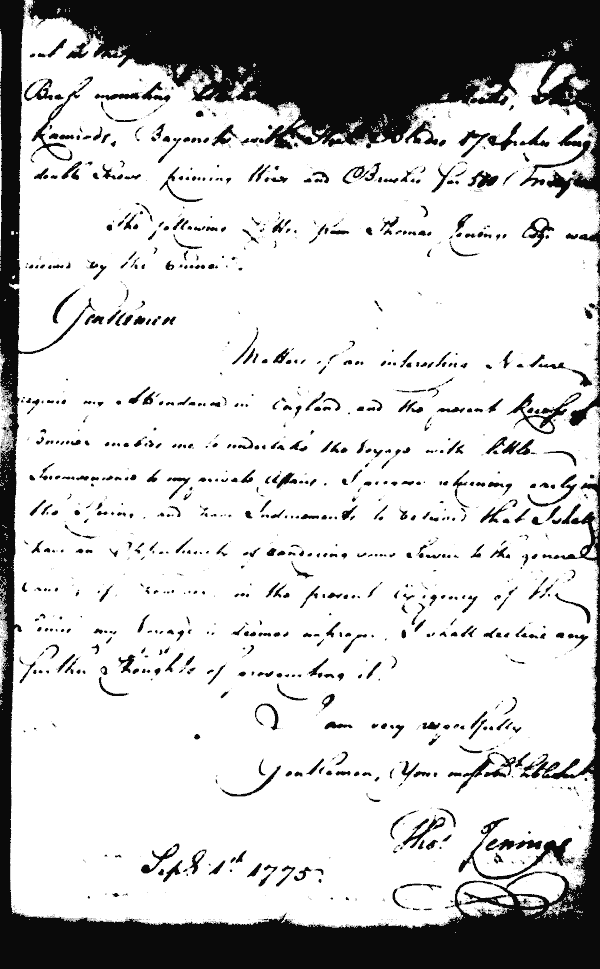 Brass mounting
Ramrods, Bayonets with Steel Blades 17 Inches long
double Screws, priming Wires and Brushes for 500 Musquets
The following Letter from Thomas Jenings Esqr was
received by the Council.
Gentlemen
Matters of an interesting Nature
require my Attendance in England, and the present Recess of
Business enables me to undertake the Voyage with little
Inconvenience to my private Affairs. I propose returning early in
the Spring, and have Inducements to believe that I shall
have an Opportunity of rendering some Service to the general
Cause; if however in the present Exigency of the
Times my Voyage is deemed improper, I shall decline any
further Thoughts of prosecuting it.
I am very respectfully
Gentlemen, Your most obedt hble Servt
Thos Jenings
Sepr 1st 1775.